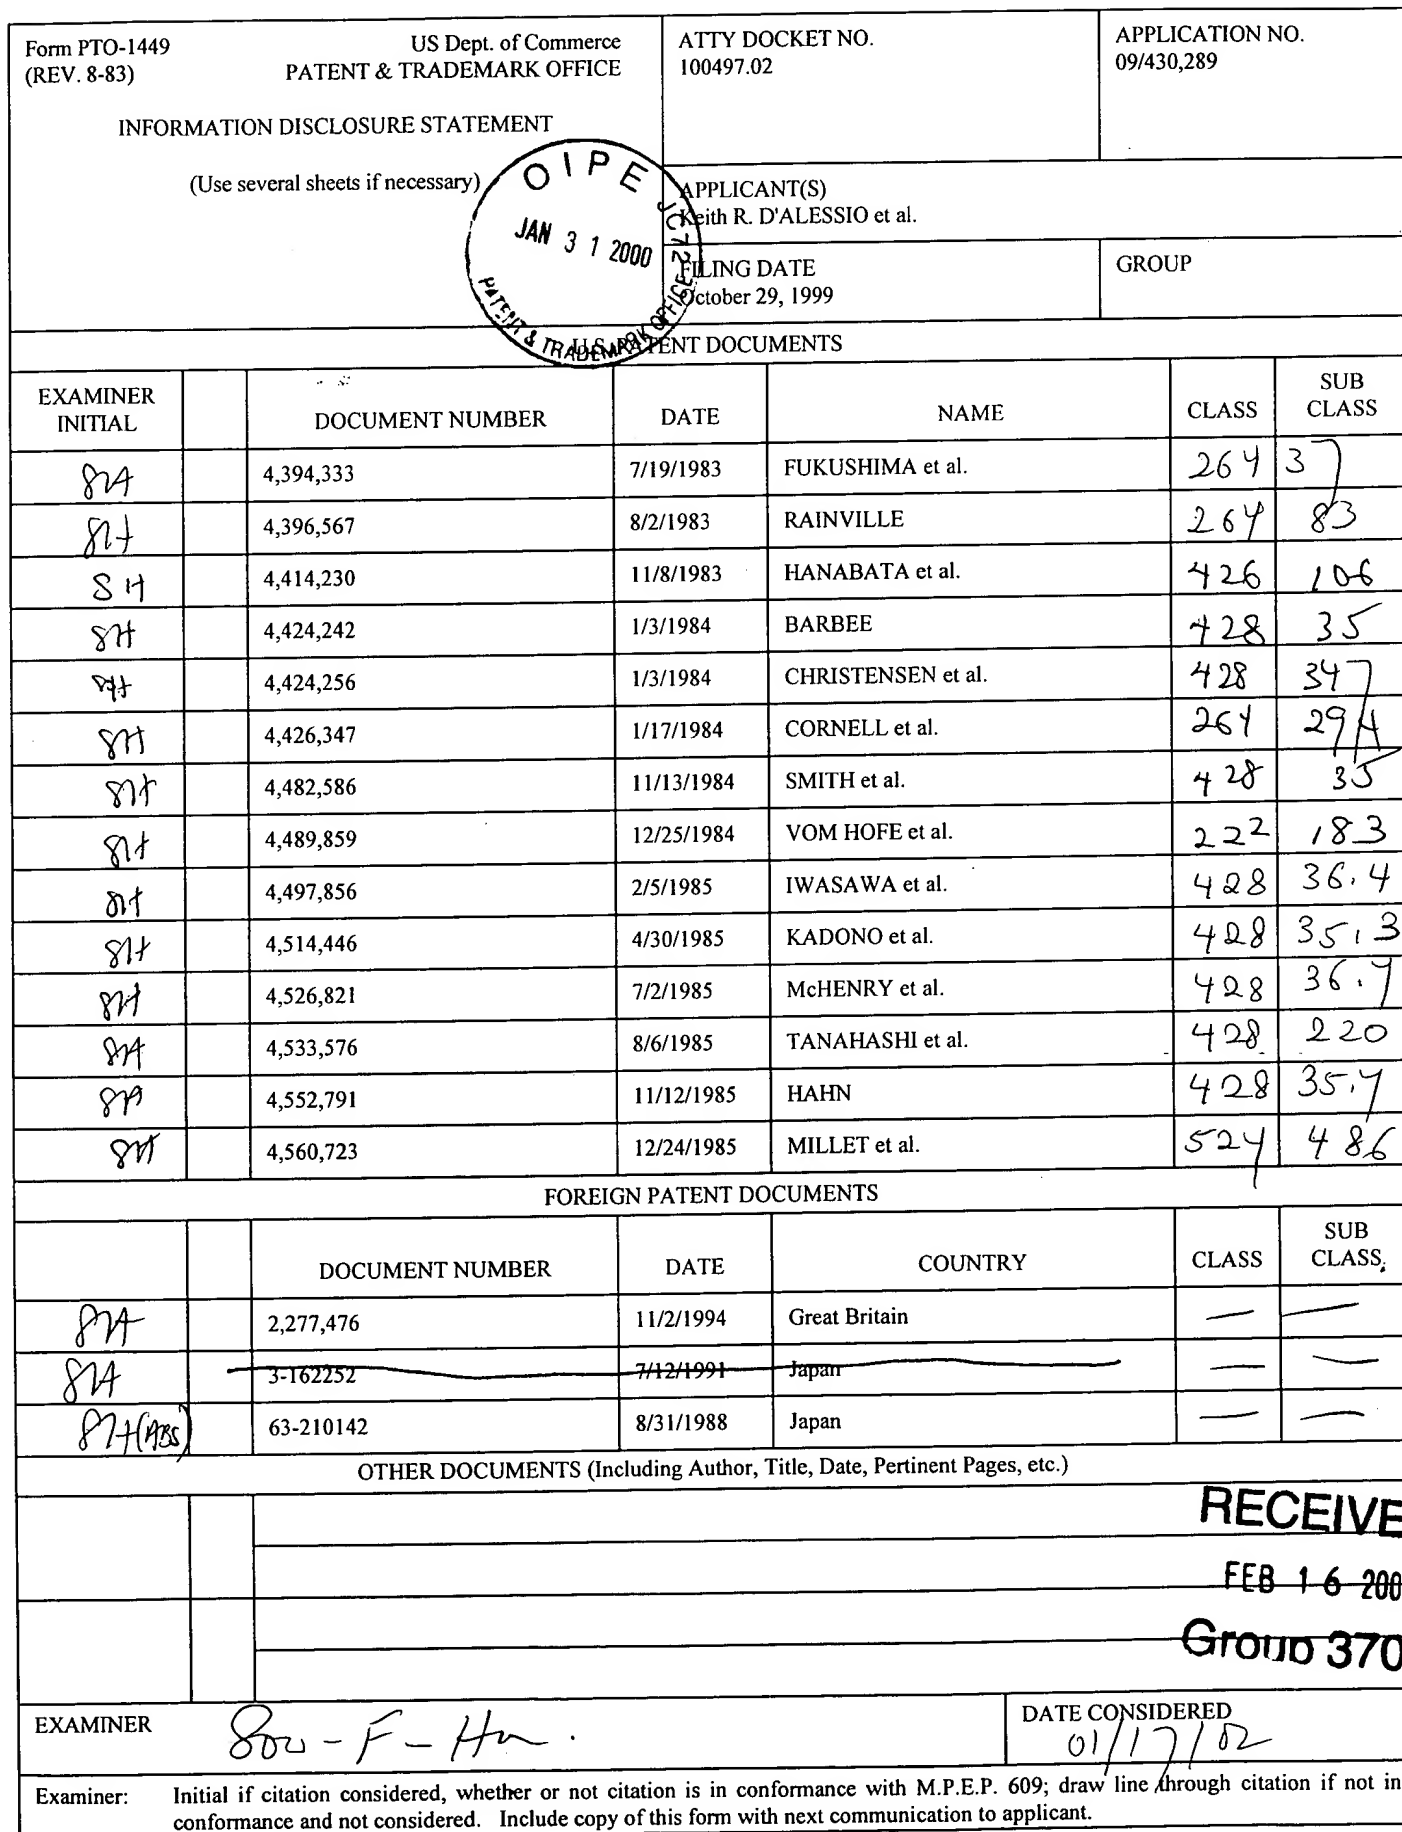 Form PTO-1449 US Dept. of Commerce
(REV. 8-83) PATENT & TRADEMARK OFFICE
INFORMATION DISCLOSURE STATEMENT
(Use several sheets if necessary)
ATTY DOCKET NO.
100497.02
APPLICATION NO.
09/430,289
OIPE JC72
JAN 31 2000
PATENT & TRADEMARK OFFICE
APPLICANT(S)
Keith R. D'ALESSIO et al.
FILING DATE
October 29, 1999
GROUP
U.S. PATENT DOCUMENTS
EXAMINER INITIAL DOCUMENT NUMBER DATE NAME CLASS SUB CLASS
SH 4,394,333 7/19/1983 FUKUSHIMA et al. 264 37
SH 4,396,567 8/2/1983 RAINVILLE 264 83
SH 4,414,230 11/8/1983 HANABATA et al. 426 106
SH 4,424,242 1/3/1984 BARBEE 428 35
SH 4,424,256 1/3/1984 CHRISTENSEN et al. 428 347
SH 4,426,347 1/17/1984 CORNELL et al. 264
SH 4,482,586 11/13/1984 SMITH et al. 428 35
SH 4,489,859 12/25/1984 VOM HOFE et al. 222 183
SH 4,497,856 2/5/1985 IWASAWA et al. 428 36.4
SH 4,514,446 4/30/1985 KADONO et al. 428 35.3
SH 4,526,821 7/2/1985 McHENRY et al. 428 36.7
SH 4,533,576 8/6/1985 TANAHASHI et al. 428 220
SH 4,552,791 11/12/1985 HAHN 428 35.7
SH 4,560,723 12/24/1985 MILLET et al. 524 486
FOREIGN PATENT DOCUMENTS
DOCUMENT NUMBER DATE COUNTRY CLASS SUB CLASS
SH 2,277,476 11/2/1994 Great Britain — —
SH 3-162252 7/12/1991 Japan — —
SH (ABS) 63-210142 8/31/1988 Japan — —
OTHER DOCUMENTS (Including Author, Title, Date, Pertinent Pages, etc.)
RECEIVE
FEB 16 200
Group 370
EXAMINER
DATE CONSIDERED
01/17/02
Examiner: Initial if citation considered, whether or not citation is in conformance with M.P.E.P. 609; draw line through citation if not in
conformance and not considered. Include copy of this form with next communication to applicant.